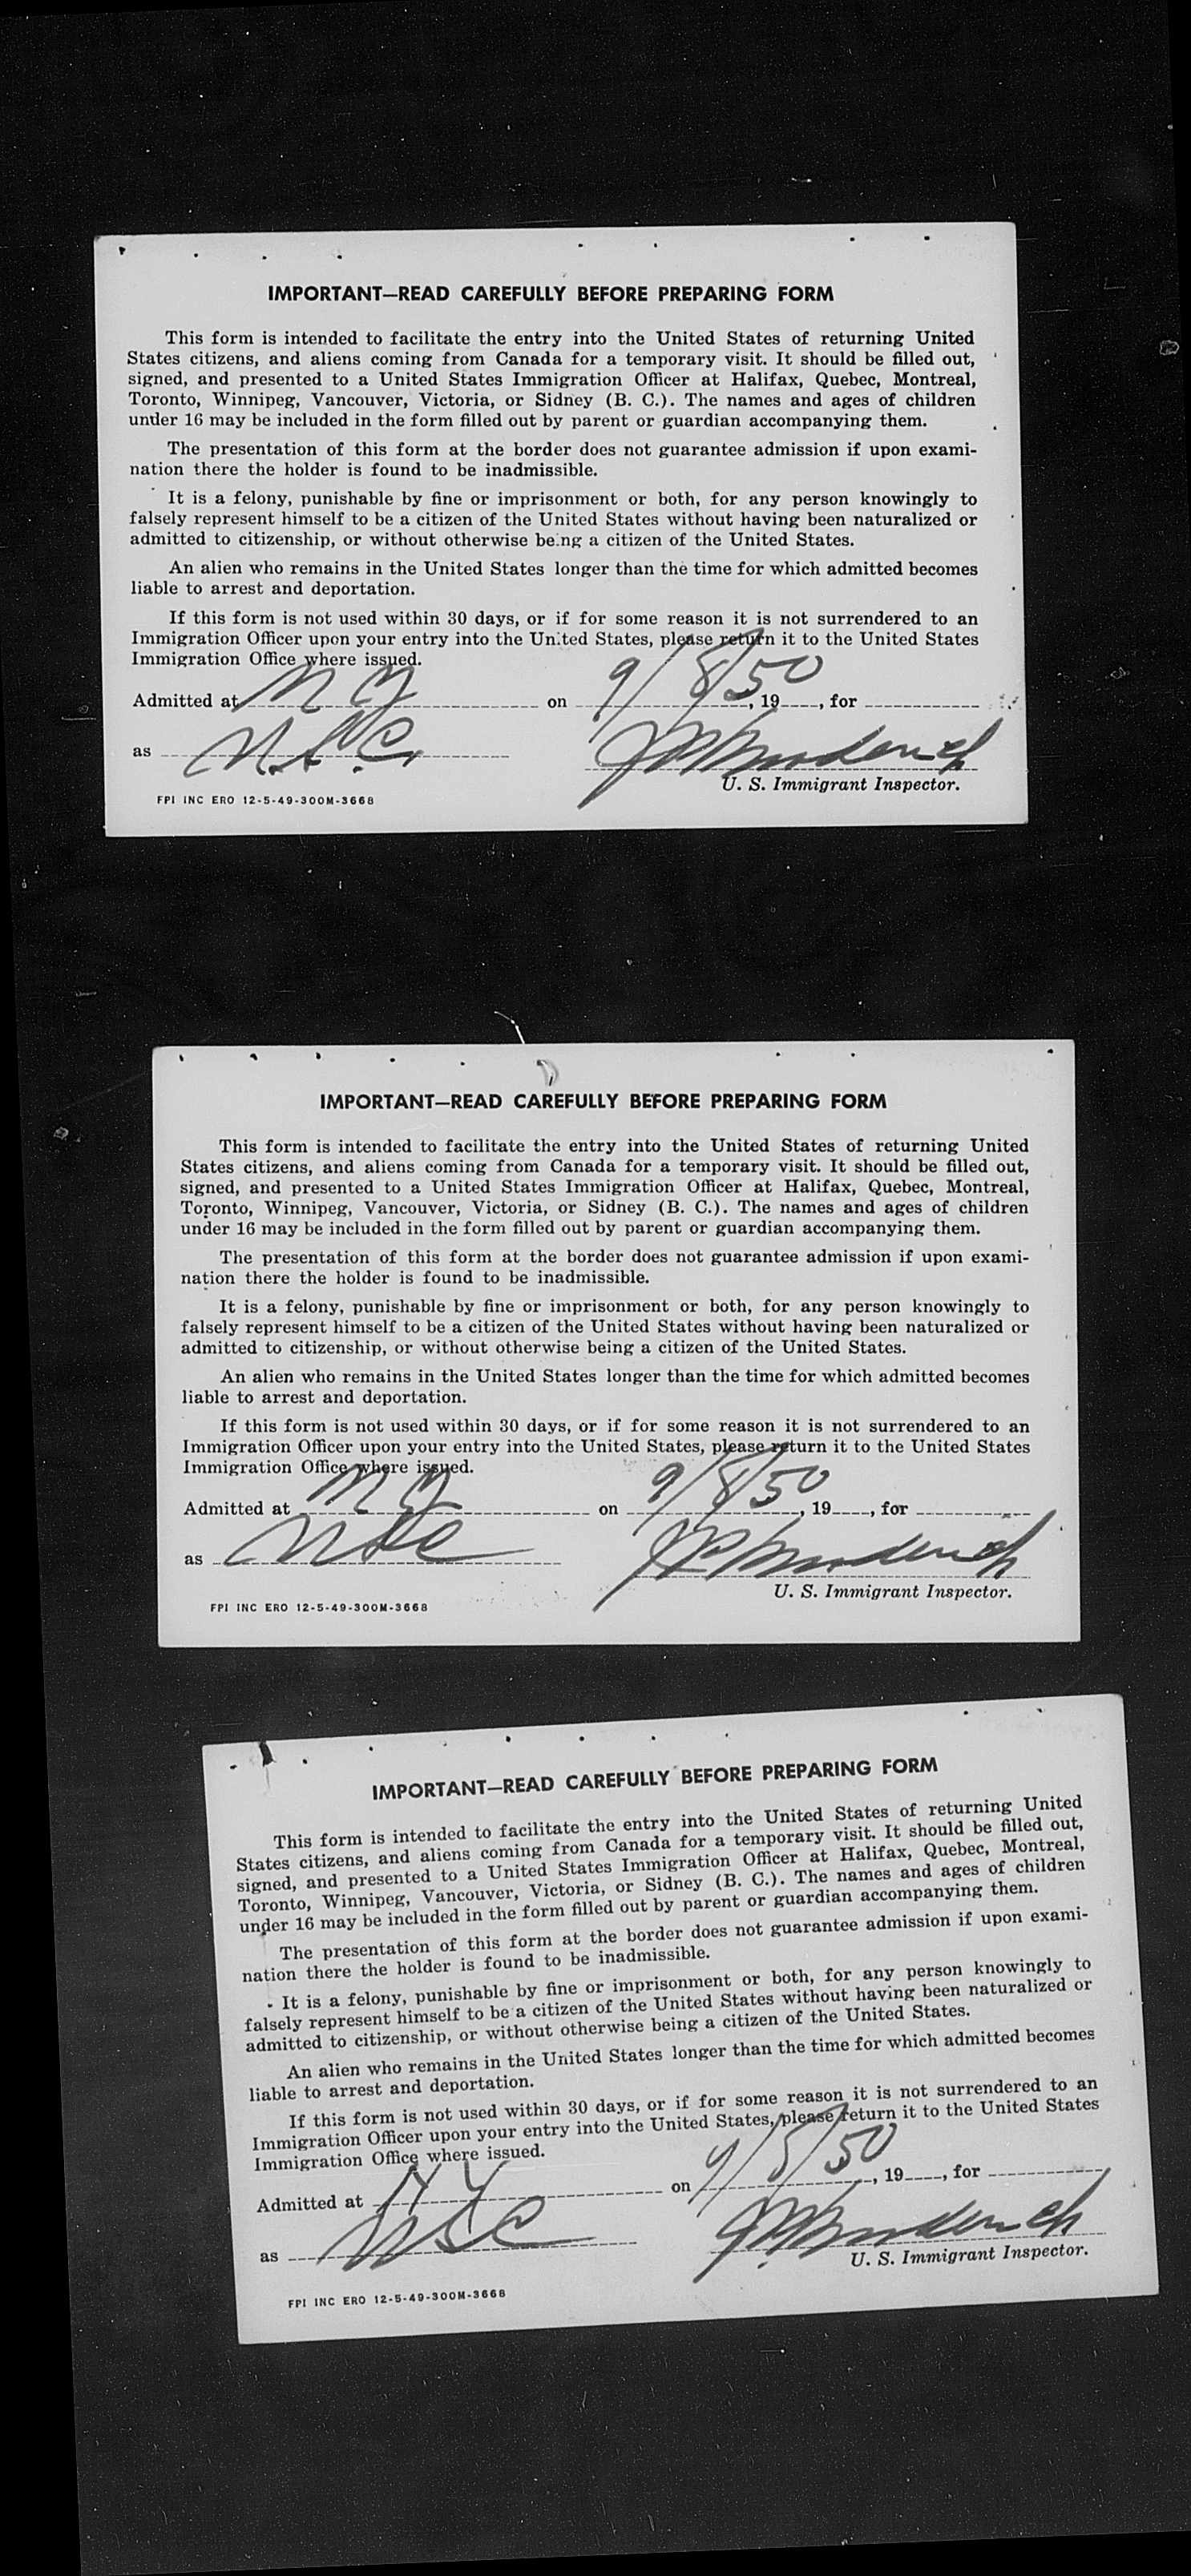 IMPORTANT—READ CAREFULLY BEFORE PREPARING FORM
This form is intended to facilitate the entry into the United States of returning United
States citizens, and aliens coming from Canada for a temporary visit. It should be filled out,
signed, and presented to a United States Immigration Officer at Halifax, Quebec, Montreal,
Toronto, Winnipeg, Vancouver, Victoria, or Sidney (B. C.). The names and ages of children
under 16 may be included in the form filled out by parent or guardian accompanying them.
The presentation of this form at the border does not guarantee admission if upon exami-
nation there the holder is found to be inadmissible.
It is a felony, punishable by fine or imprisonment or both, for any person knowingly to
falsely represent himself to be a citizen of the United States without having been naturalized or
admitted to citizenship, or without otherwise being a citizen of the United States.
An alien who remains in the United States longer than the time for which admitted becomes
liable to arrest and deportation.
If this form is not used within 30 days, or if for some reason it is not surrendered to an
Immigration Officer upon your entry into the United States, please return it to the United States
Immigration Office where issued.
Admitted at N Y on 9/8/50, 19, for
as
U. S. Immigrant Inspector.
FPI INC ERO 12-5-49-300M-3668
IMPORTANT—READ CAREFULLY BEFORE PREPARING FORM
This form is intended to facilitate the entry into the United States of returning United
States citizens, and aliens coming from Canada for a temporary visit. It should be filled out,
signed, and presented to a United States Immigration Officer at Halifax, Quebec, Montreal,
Toronto, Winnipeg, Vancouver, Victoria, or Sidney (B. C.). The names and ages of children
under 16 may be included in the form filled out by parent or guardian accompanying them.
The presentation of this form at the border does not guarantee admission if upon exami-
nation there the holder is found to be inadmissible.
It is a felony, punishable by fine or imprisonment or both, for any person knowingly to
falsely represent himself to be a citizen of the United States without having been naturalized or
admitted to citizenship, or without otherwise being a citizen of the United States.
An alien who remains in the United States longer than the time for which admitted becomes
liable to arrest and deportation.
If this form is not used within 30 days, or if for some reason it is not surrendered to an
Immigration Officer upon your entry into the United States, please return it to the United States
Immigration Office where issued.
Admitted at N Y on 9/8/50, 19, for
as
U. S. Immigrant Inspector.
FPI INC ERO 12-5-49-300M-3668
IMPORTANT—READ CAREFULLY BEFORE PREPARING FORM
This form is intended to facilitate the entry into the United States of returning United
States citizens, and aliens coming from Canada for a temporary visit. It should be filled out,
signed, and presented to a United States Immigration Officer at Halifax, Quebec, Montreal,
Toronto, Winnipeg, Vancouver, Victoria, or Sidney (B. C.). The names and ages of children
under 16 may be included in the form filled out by parent or guardian accompanying them.
The presentation of this form at the border does not guarantee admission if upon exami-
nation there the holder is found to be inadmissible.
It is a felony, punishable by fine or imprisonment or both, for any person knowingly to
falsely represent himself to be a citizen of the United States without having been naturalized or
admitted to citizenship, or without otherwise being a citizen of the United States.
An alien who remains in the United States longer than the time for which admitted becomes
liable to arrest and deportation.
If this form is not used within 30 days, or if for some reason it is not surrendered to an
Immigration Officer upon your entry into the United States, please return it to the United States
Immigration Office where issued.
Admitted at N Y on 9/8/50, 19, for
as USC
U. S. Immigrant Inspector.
FPI INC ERO 12-5-49-300M-3668